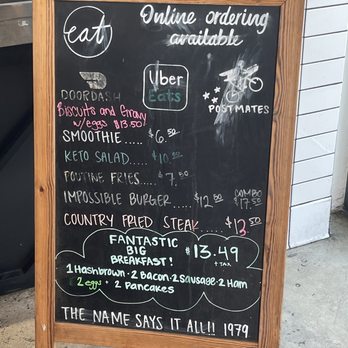 eat
Online ordering
available
DOORDASH
Uber
Eats
POSTMATES
Biscuits and Gravy
w/eggs $13.50
SMOOTHIE..... $6.50
KETO SALAD..... $10.50
POUTINE FRIES.... $7.50
IMPOSSIBLE BURGER.... $12.50 COMBO $17.50
COUNTRY FRIED STEAK..... $13.50
FANTASTIC
BIG
BREAKFAST!
$13.49
+ TAX
1 Hashbrown · 2 Bacon · 2 Sausage · 2 Ham
2 eggs · 2 Pancakes
THE NAME SAYS IT ALL!! 1979